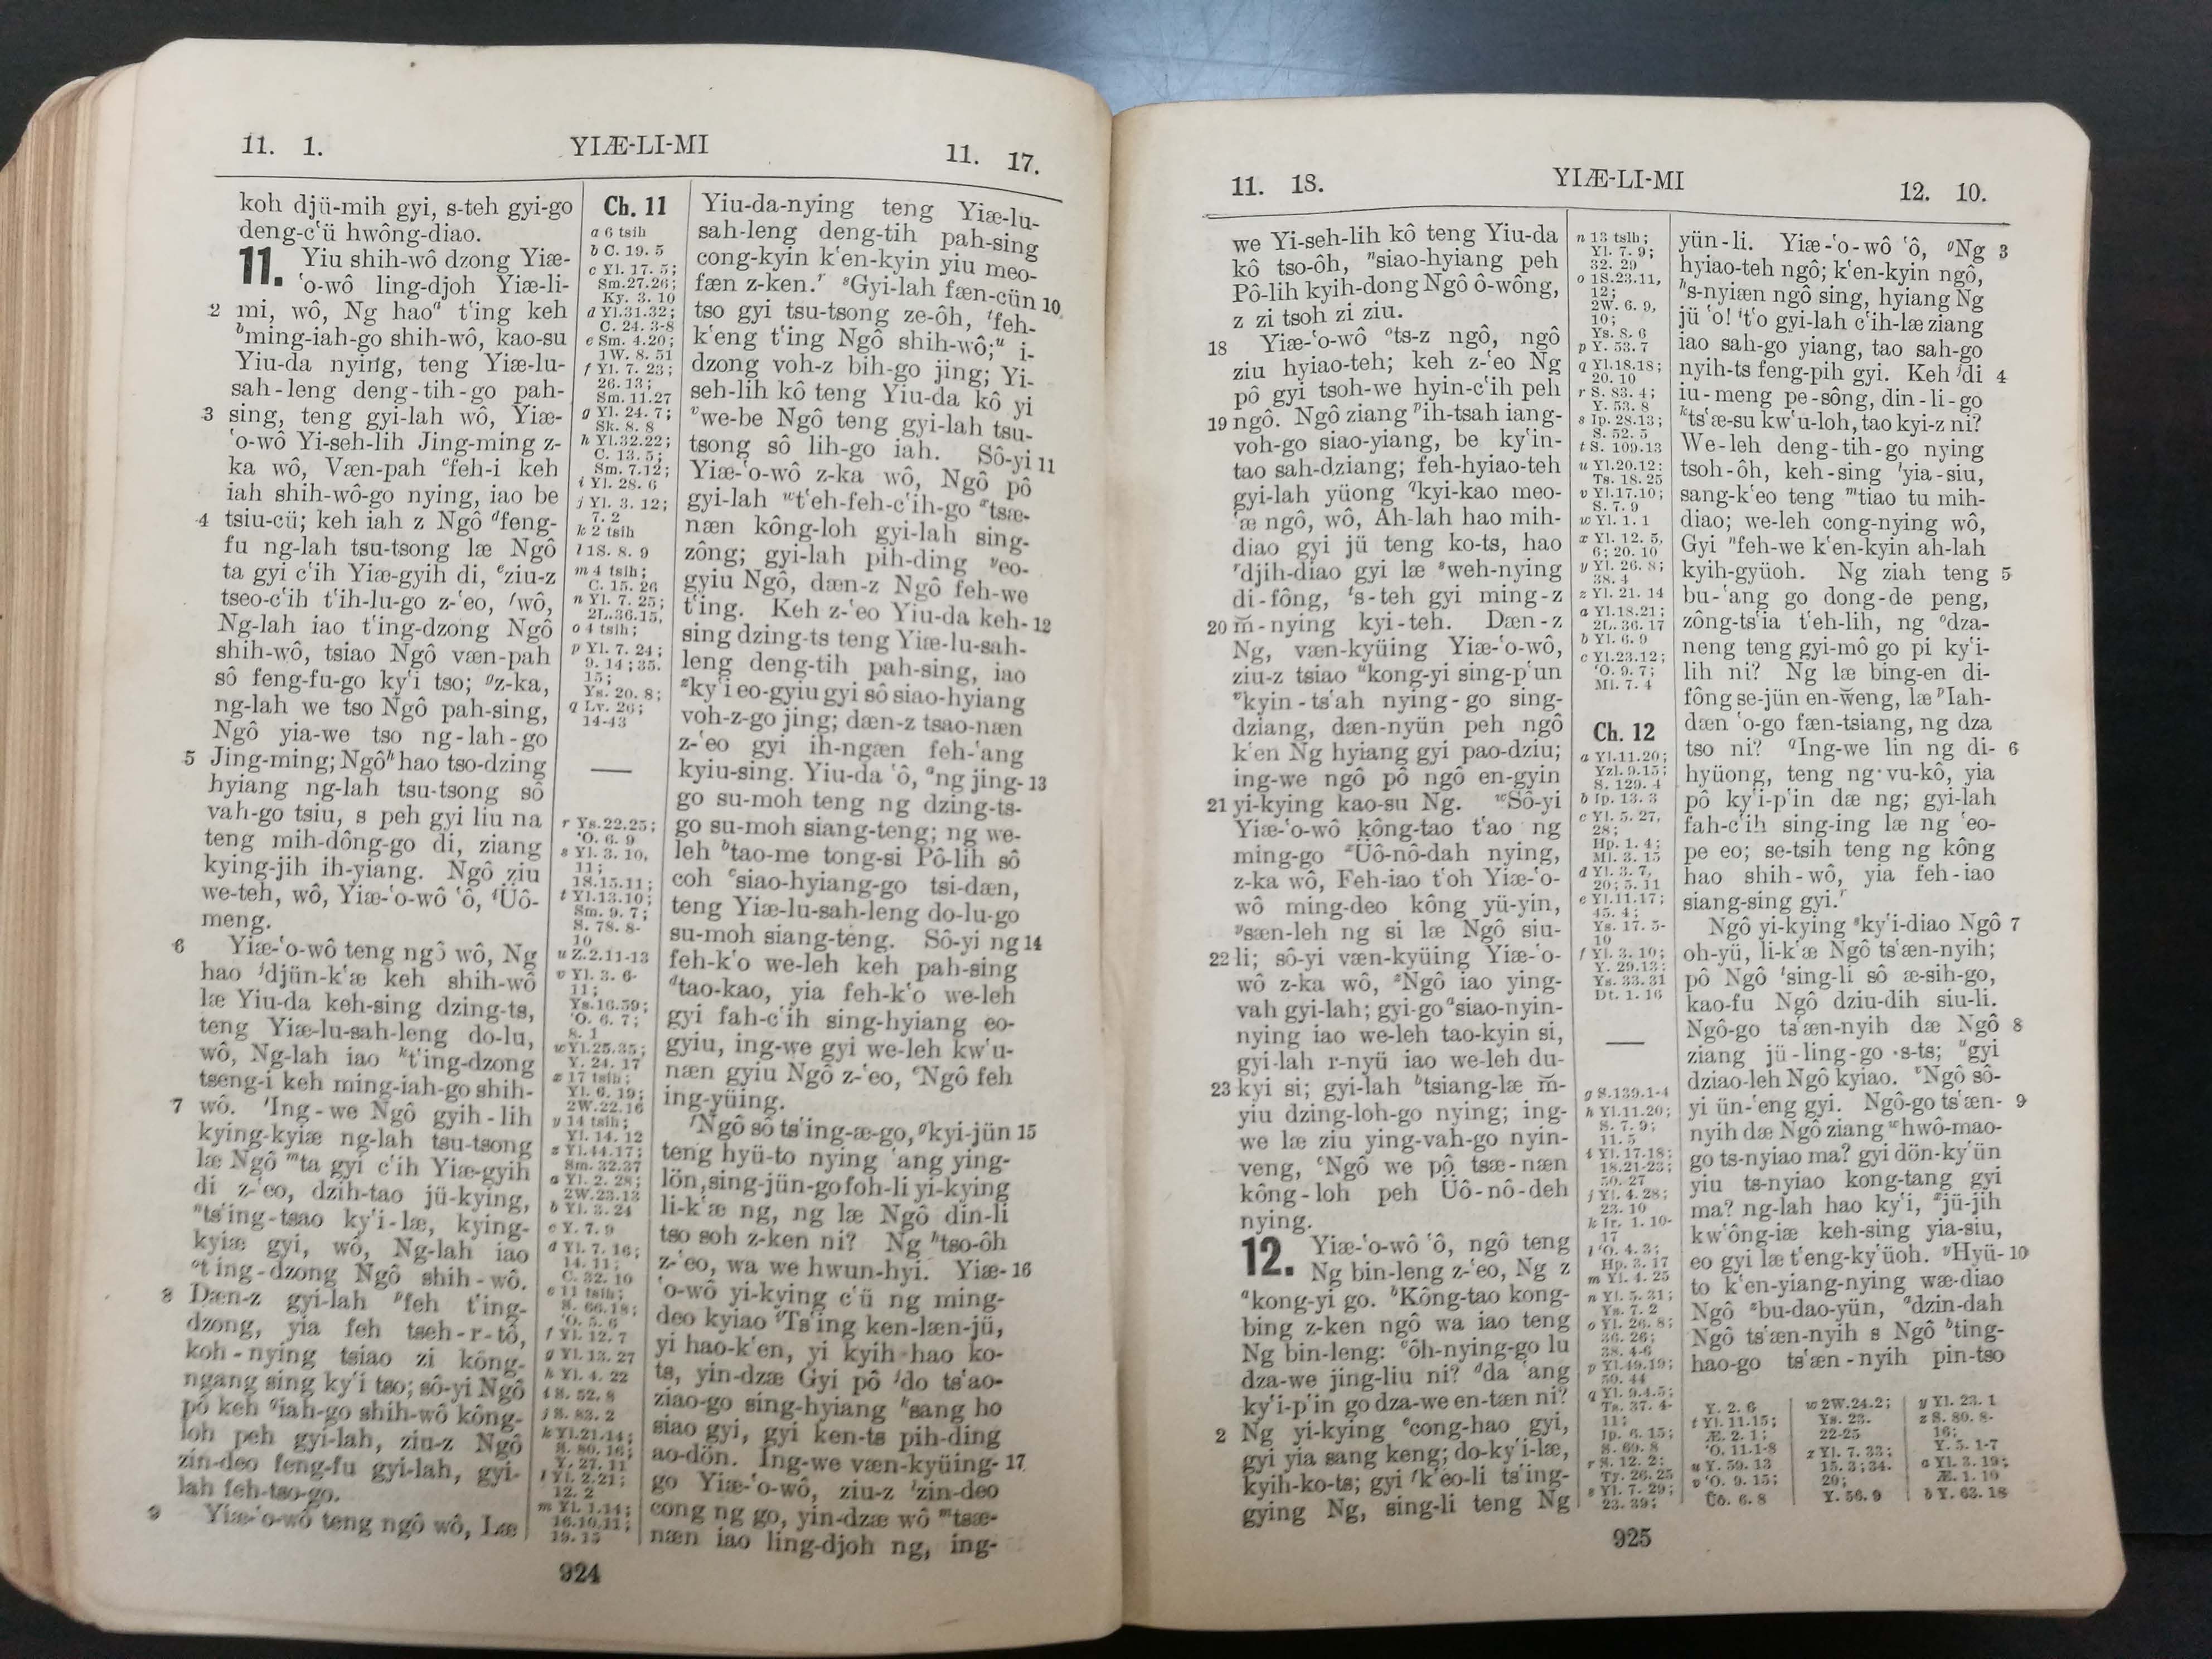 11. 1. YIÆ-LI-MI 11. 17.
koh djü-mih gyi, s-teh gyi-go
deng-c‘ü hwông-diao.
11. Yiu shih-wô dzong Yiæ-
‘o-wô ling-djoh Yiæ-li-
2 mi, wô, Ng hao a t‘ing keh
b ming-iah-go shih-wô, kao-su
Yiu-da nying, teng Yiæ-lu-
sah-leng deng-tih-go pah-
3 sing, teng gyi-lah wô, Yiæ-
‘o-wô Yi-seh-lih Jing-ming z-
ka wô, Væn-pah c feh-i keh
iah shih-wô-go nying, iao be
4 tsiu-cü; keh iah z Ngô d feng-
fu ng-lah tsu-tsong læ Ngô
ta gyi c‘ih Yiæ-gyih di, e ziu-z
tseo-c‘ih t‘ih-lu-go z-‘eo, f wô,
Ng-lah iao t‘ing-dzong Ngô
shih-wô, tsiao Ngô væn-pah
sô feng-fu-go ky‘i tso; g z-ka,
ng-lah we tso Ngô pah-sing,
Ngô yia-we tso ng-lah-go
5 Jing-ming; Ngô h hao tso-dzing
hyiang ng-lah tsu-tsong sô
vah-go tsiu, s peh gyi liu na
teng mih-dông-go di, ziang
kying-jih ih-yiang. Ngô ziu
we-teh, wô, Yiæ-‘o-wô ‘ô, i Üô-
meng.
6 Yiæ-‘o-wô teng ngô wô, Ng
hao j djün-k‘æ keh shih-wô
læ Yiu-da keh-sing dzing-ts,
teng Yiæ-lu-sah-leng do-lu,
wô, Ng-lah iao k t‘ing-dzong
tseng-i keh ming-iah-go shih-
7 wô. l Ing-we Ngô gyih-lih
kying-kyiæ ng-lah tsu-tsong
læ Ngô m ta gyi c‘ih Yiæ-gyih
di z-‘eo, dzih-tao jü-kying,
n ts‘ing-tsao ky‘i-læ, kying-
kyiæ gyi, wô, Ng-lah iao
o t‘ing-dzong Ngô shih-wô.
8 Dæn-z gyi-lah p feh t‘ing-
dzong, yia feh tseh-r-tô,
koh-nying tsiao zi kông-
ngang sing ky‘i tso; sô-yi Ngô
pô keh q iah-go shih-wô kông-
loh peh gyi-lah, ziu-z Ngô
zin-deo feng-fu gyi-lah, gyi-
lah feh-tso-go.
9 Yiæ-‘o-wô teng ngô wô, Læ
Ch. 11
a 6 tsih
b C. 19. 5
c Yl. 17. 5;
Sm.27.26;
Ky. 3. 10
d Yl.31.32;
C. 24. 3-8
e Sm. 4.20;
1W. 8. 51
f Yl. 7. 23;
26. 13;
Sm. 11.27
g Yl. 24. 7;
Sk. 8. 8
h Yl.32.22;
C. 13. 5;
Sm. 7.12;
i Yl. 28. 6
j Yl. 3. 12;
7. 2
k 2 tsih
l 1S. 8. 9
m 4 tsih;
C. 15. 26
n Yl. 7. 25;
2L.36.15,
o 4 tsih;
p Yl. 7. 24;
9. 14; 35.
15;
Ys. 20. 8;
q Lv. 26;
14-43
r Ys.22.25;
‘O. 6. 9
s Yl. 3. 10,
11;
1S.15.11;
t Yl.13.10;
Sm. 9. 7;
S. 78. 8-
10
u Z.2.11-13
v Yl. 3. 6-
11;
Ys.16.59;
‘O. 6. 7;
8. 1
w Yl.25.35;
Y. 24. 17
x 17 tsih;
Yl. 6. 19;
2W.22.16
y 14 tsih;
Yl. 14. 12
z Yl.44.17;
Sm. 32.37
a Yl. 2. 28;
2W.23.13
b Yl. 3. 24
c Y. 7. 9
d Yl. 7. 16;
14. 11;
C. 32. 10
e 11 tsih;
S. 66.18;
‘O. 5. 6
f Yl. 12. 7
g Yl. 13. 27
h Yl. 4. 22
i S. 52. 8
j S. 83. 2
k Yl.21.14;
S. 80. 16;
Y. 27. 11
l Yl. 2.21;
12. 2
m Yl. 1.14;
16.10,11;
19. 15
Yiu-da-nying teng Yiæ-lu-
sah-leng deng-tih pah-sing
cong-kyin k‘en-kyin yiu meo-
fæn z-ken. r s Gyi-lah fæn-cün 10
tso gyi tsu-tsong ze-ôh, t feh-
k‘eng t‘ing Ngô shih-wô; u i-
dzong voh-z bih-go jing; Yi-
seh-lih kô teng Yiu-da kô yi
v we-be Ngô teng gyi-lah tsu-
tsong sô lih-go iah. Sô-yi 11
Yiæ-‘o-wô z-ka wô, Ngô pô
gyi-lah w t‘eh-feh-c‘ih-go x tsæ-
næn kông-loh gyi-lah sing-
zông; gyi-lah pih-ding y eo-
gyiu Ngô, dæn-z Ngô feh-we
t‘ing. Keh z-‘eo Yiu-da keh- 12
sing dzing-ts teng Yiæ-lu-sah-
leng deng-tih pah-sing, iao
z ky‘i eo-gyiu gyi sô siao-hyiang
voh-z-go jing; dæn-z tsao-næn
z-‘eo gyi ih-ngæn feh-‘ang
kyiu-sing. Yiu-da ‘ô, a ng jing- 13
go su-moh teng ng dzing-ts-
go su-moh siang-teng; ng we-
leh b tao-me tong-si Pô-lih sô
coh c siao-hyiang-go tsi-dæn,
teng Yiæ-lu-sah-leng do-lu-go
su-moh siang-teng. Sô-yi ng 14
feh-k‘o we-leh keh pah-sing
d tao-kao, yia feh-k‘o we-leh
gyi fah-c‘ih sing-hyiang eo-
gyiu, ing-we gyi we-leh kw‘u-
næn gyiu Ngô z-‘eo, e Ngô feh
ing-yüing.
f Ngô sô ts‘ing-æ-go, g kyi-jün 15
teng hyü-to nying ‘ang ying-
lön, sing-jün-go foh-li yi-kying
li-k‘æ ng, ng læ Ngô din-li
tso soh z-ken ni? Ng h tso-ôh
z-‘eo, wa we hwun-hyi. Yiæ- 16
‘o-wô yi-kying c‘ü ng ming-
deo kyiao i Ts‘ing ken-læn-jü,
yi hao-k‘en, yi kyih-hao ko-
ts, yin-dzæ Gyi pô j do ts‘ao-
ziao-go sing-hyiang k sang ho
siao gyi, gyi ken-ts pih-ding
ao-dön. Ing-we væn-kyüing- 17
go Yiæ-‘o-wô, ziu-z l zin-deo
cong ng go, yin-dzæ wô m tsæ-
næn iao ling-djoh ng, ing-
924
11. 18. YIÆ-LI-MI 12. 10.
we Yi-seh-lih kô teng Yiu-da
kô tso-ôh, n siao-hyiang peh
Pô-lih kyih-dong Ngô ô-wông,
z zi tsoh zi ziu.
18 Yiæ-‘o-wô o ts-z ngô, ngô
ziu hyiao-teh; keh z-‘eo Ng
pô gyi tsoh-we hyin-c‘ih peh
19 ngô. Ngô ziang p ih-tsah iang-
voh-go siao-yiang, be ky‘in-
tao sah-dziang; feh-hyiao-teh
gyi-lah yüong q kyi-kao meo-
‘æ ngô, wô, Ah-lah hao mih-
diao gyi jü teng ko-ts, hao
r djih-diao gyi læ s weh-nying
di-fông, t s-teh gyi ming-z
20 m̆-nying kyi-teh. Dæn-z
Ng, væn-kyüing Yiæ-‘o-wô,
ziu-z tsiao u kong-yi sing-p‘un
v kyin-ts‘ah nying-go sing-
dziang, dæn-nyün peh ngô
k‘en Ng hyiang gyi pao-dziu;
ing-we ngô pô ngô en-gyin
21 yi-kying kao-su Ng. w Sô-yi
Yiæ-‘o-wô kông-tao t‘ao ng
ming-go x Üô-nô-dah nying,
z-ka wô, Feh-iao t‘oh Yiæ-‘o-
wô ming-deo kông yü-yin,
y sæn-leh ng si læ Ngô siu-
22 li; sô-yi væn-kyüing Yiæ-‘o-
wô z-ka wô, z Ngô iao ying-
vah gyi-lah; gyi-go a siao-nyin-
nying iao we-leh tao-kyin si,
gyi-lah r-nyü iao we-leh du-
23 kyi si; gyi-lah b tsiang-læ m̆-
yiu dzing-loh-go nying; ing-
we læ ziu ying-vah-go nyin-
veng, c Ngô we pô tsæ-næn
kông-loh peh Üô-nô-deh
nying.
12. Yiæ-‘o-wô ‘ô, ngô teng
Ng bin-leng z-‘eo, Ng z
a kong-yi go. b Kông-tao kong-
bing z-ken ngô wa iao teng
Ng bin-leng: c ôh-nying-go lu
dza-we jing-liu ni? d da ‘ang
ky‘i-p‘in go dza-we en-tæn ni?
2 Ng yi-kying e cong-hao gyi,
gyi yia sang keng; do-ky‘i-læ,
kyih-ko-ts; gyi f k‘eo-li ts‘ing-
gying Ng, sing-li teng Ng
n 13 tsih;
Yl. 7. 9;
32. 29
o 1S.23.11,
12;
2W. 6. 9,
10;
Ys. 8. 6
p Y. 53. 7
q Yl.18.18;
20. 10
r S. 83. 4;
Y. 53. 8
s Ip. 28.13;
S. 52. 5
t S. 109.13
u Yl.20.12;
Ts. 18. 25
v Yl.17.10;
S. 7. 9
w Yl. 1. 1
x Yl. 12. 5,
6; 20. 10
y Yl. 26. 8;
38. 4
z Yl. 21. 14
a Yl.18.21;
2L. 36. 17
b Yl. 6. 9
c Yl.23.12;
‘O. 9. 7;
Mi. 7. 4
Ch. 12
a Yl.11.20;
Yzl. 9.15;
S. 129. 4
b Ip. 13. 3
c Yl. 5. 27,
28;
Hp. 1. 4;
Ml. 3. 15
d Yl. 3. 7,
20; 5. 11
e Yl.11.17;
45. 4;
Ys. 17. 5-
10
f Yl. 3. 10;
Y. 29.13;
Ys. 33.31
Dt. 1. 16
g S.139.1-4
h Yl.11.20;
S. 7. 9;
11. 5
i Yl. 17.18;
18.21-23;
50. 27
j Yl. 4. 28;
23. 10
k Ir. 1. 10-
17
l ‘O. 4. 3;
Hp. 3. 17
m Yl. 4. 25
n Yl. 5. 31;
Ys. 7. 2
o Yl. 26. 8;
36. 26;
38. 4-6
p Yl.49.19;
50. 44
q Yl. 9.4.5;
Ts. 37. 4-
11;
Ip. 6. 15;
S. 69. 8
r S. 12. 2;
Ty. 26. 25
s Yl. 7. 29;
23. 39;
yün-li. Yiæ-‘o-wô ‘ô, g Ng 3
hyiao-teh ngô; k‘en-kyin ngô,
h s-nyiæn ngô sing, hyiang Ng
jü ‘o! i t‘o gyi-lah c‘ih-læ ziang
iao sah-go yiang, tao sah-go
nyih-ts feng-pih gyi. Keh j di 4
iu-meng pe-sông, din-li-go
k ts‘æ-su kw‘u-loh, tao kyi-z ni?
We-leh deng-tih-go nying
tsoh-ôh, keh-sing l yia-siu,
sang-k‘eo teng m tiao tu mih-
diao; we-leh cong-nying wô,
Gyi n feh-we k‘en-kyin ah-lah
kyih-gyüoh. Ng ziah teng 5
bu-‘ang go dong-de peng,
zông-ts‘ia t‘eh-lih, ng o dza-
neng teng gyi-mô go pi ky‘i-
lih ni? Ng læ bing-en di-
fông se-jün en-w̆eng, læ p Iah-
dæn ‘o-go fæn-tsiang, ng dza
tso ni? q Ing-we lin ng di- 6
hyüong, teng ng vu-kô, yia
pô ky‘i-p‘in dæ ng; gyi-lah
fah-c‘ih sing-ing læ ng ‘eo-
pe eo; se-tsih teng ng kông
hao shih-wô, yia feh-iao
siang-sing gyi. r
Ngô yi-kying s ky‘i-diao Ngô 7
oh-yü, li-k‘æ Ngô ts‘æn-nyih;
pô Ngô t sing-li sô æ-sih-go,
kao-fu Ngô dziu-dih siu-li.
Ngô-go ts‘æn-nyih dæ Ngô 8
ziang jü-ling-go s-ts; u gyi
dziao-leh Ngô kyiao. v Ngô sô-
yi ün-‘eng gyi. Ngô-go ts‘æn- 9
nyih dæ Ngô ziang w hwô-mao-
go ts-nyiao ma? gyi dön-ky‘ün
yiu ts-nyiao kong-tang gyi
ma? ng-lah hao ky‘i, x jü-jih
kw‘ông-iæ keh-sing yia-siu,
eo gyi læ t‘eng-ky‘üoh. y Hyü- 10
to k‘en-yiang-nying wæ-diao
Ngô z bu-dao-yün, a dzin-dah
Ngô ts‘æn-nyih s Ngô b ting-
hao-go ts‘æn-nyih pin-tso
Y. 2. 6
t Yl. 11.15;
Æ. 2. 1;
‘O. 11.1-8
u Y. 59. 13
v ‘O. 9. 15;
Üô. 6. 8
w 2W.24.2;
Ys. 23.
22-25
x Yl. 7. 33;
15. 3; 34.
20;
Y. 56. 9
y Yl. 23. 1
z S. 80. 8-
16;
Y. 5. 1-7
a Yl. 3. 19;
Æ. 1. 10
b Y. 63. 18
925